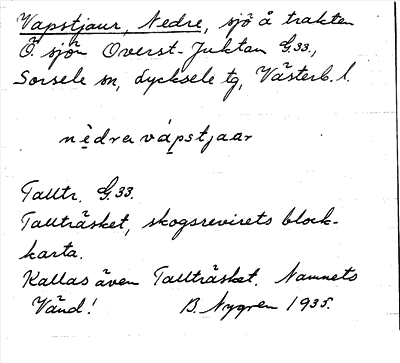 Vapstjaur, Nedre, sjö å trakten
Ö. sjön Överst-Juktan G.33.,
Sorsele sn, Lycksele tg, Västerb. l.
nẹ̀drẹ vápstjaar
Talltr. G.33.
Tallträsket, skogsrevirets block-
karta.
Kallas även Tallträsket. Namnets
Vänd! B. Nygren 1935.